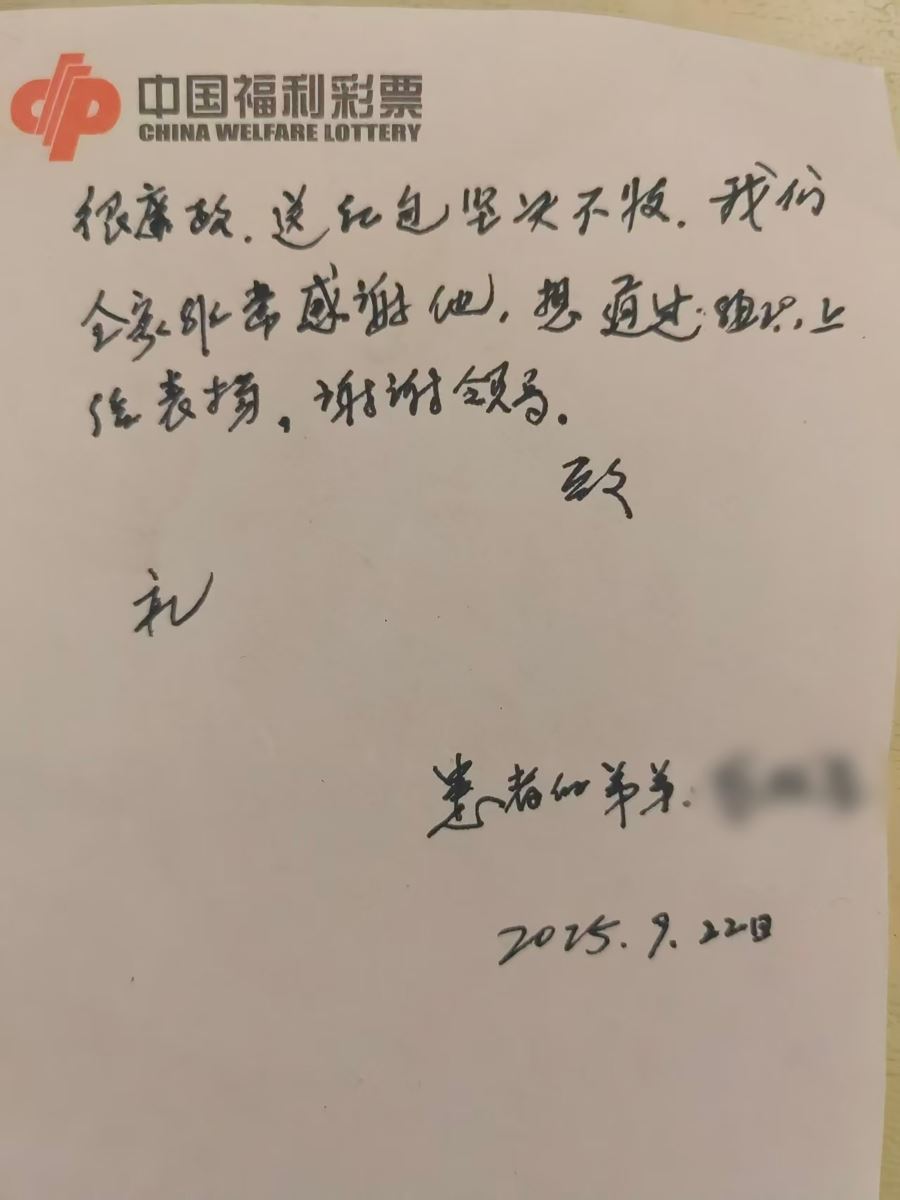 中国福利彩票
CHINA WELFARE LOTTERY
很廉政，送红包坚决不收。我们
全家非常感谢他，想通过组织上
给表扬。谢谢领导。
致
礼
患者的弟弟：
2025.9.22日